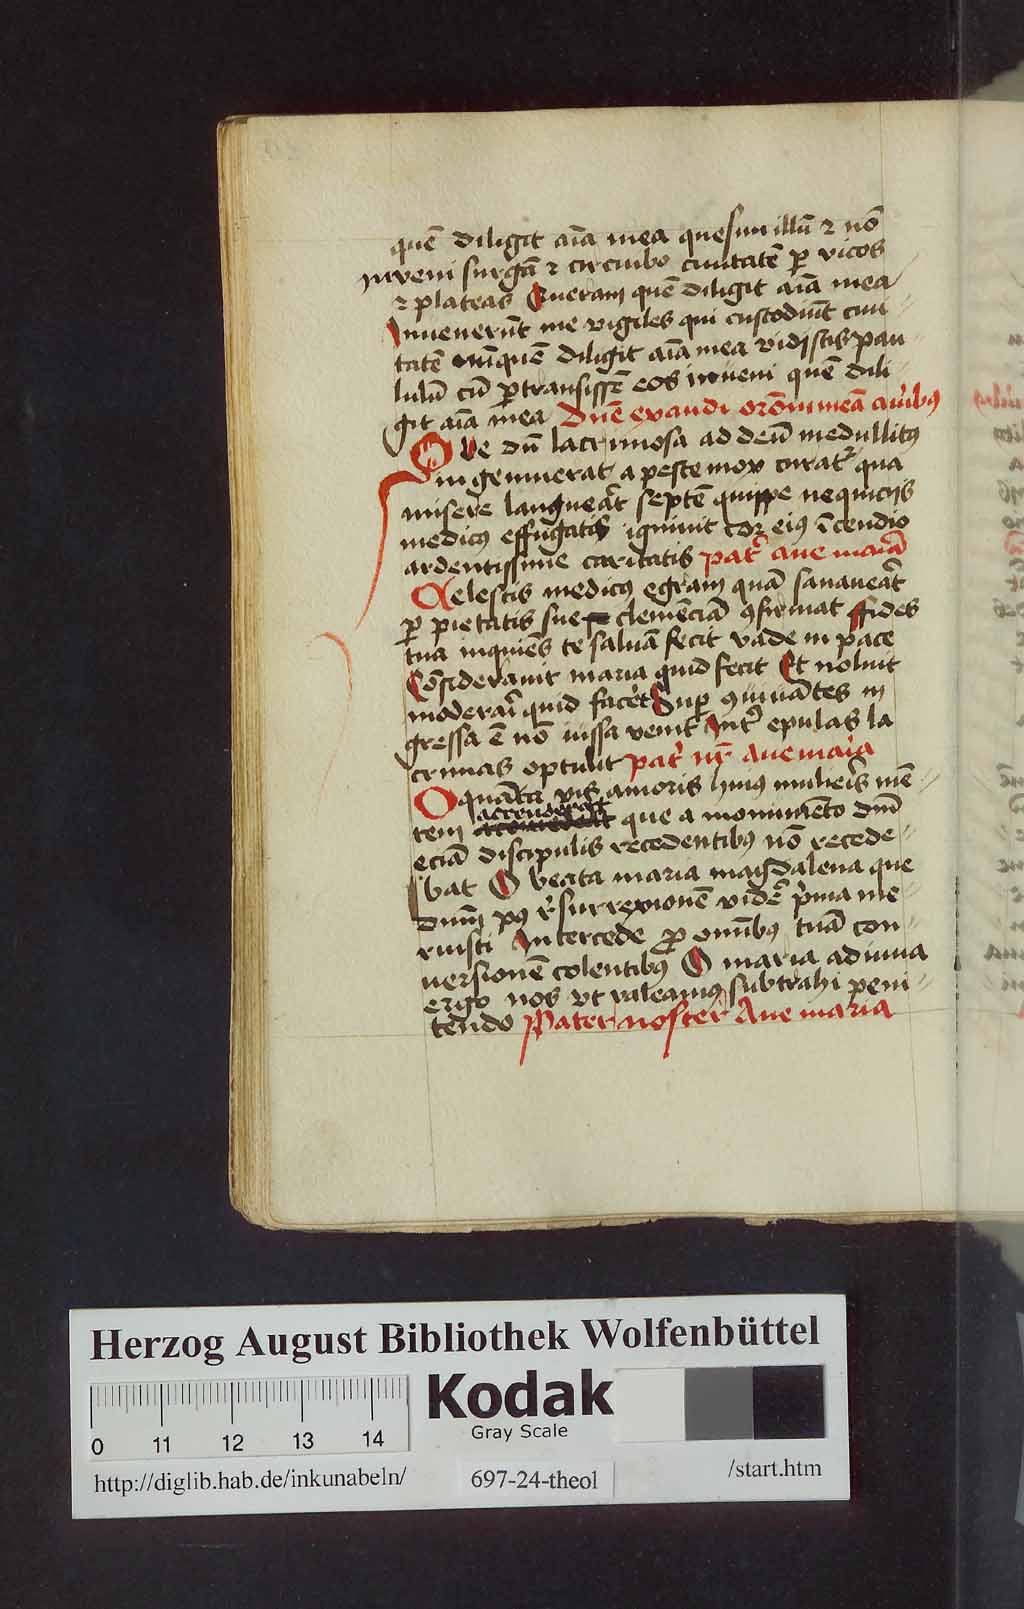 quē diligit aīa mea quesiui illū ⁊ nō
inveni surgā ⁊ circuibo ciuitatē ꝑ vicos
⁊ plateas Queram quē diligit aīa mea
Inuenerūt me vigiles qui custodiūt ciui-
tatē nūquē diligit aīa mea vidistis pau-
lulū cū ꝑtransissē eos inveni quē dili-
git aīa mea Dn̄e exaudi orōnē meā auribus
Que dū lacrimosa ad deū medullitꝰ
ingemuerat a peste mox curat᷑ qua
misere languerat septē quippe nequiciis
medicꝰ effugatis igniuit cor eiꝰ īcendio
ardentissime caritatis pat᷑ aue maria
Celestis medicꝰ egram quā sanauerat
ꝑ pietatis sue clemēciā ꝯfirmat ffides
tua inquiēs te saluā fecit vade in pace
Cōsiderauit maria quid fecit Et noluit
moderari quid faceret Suꝑ ꝯuiuātes in
gressa ē nō iussa venit Int᷑ epulas la
crimas optulit pat᷑ nr̄ Aue maria
O quāta vis amoris huiꝰ mulieris mē-
tem accenderat que a monumēto dn̄i
eciā discipulis recedentibꝰ nō recede-
bat O beata maria magdalena que
dn̄m pꝰ resurrexionē videre prima me-
ruisti Intercede ꝓ omībꝰ tuā con-
uersionē colentibꝰ O maria adiuua
ergo nos vt valeamꝰ subtrahi peni-
tendo Pater noster Aue maria
Herzog August Bibliothek Wolfenbüttel
Kodak
Gray Scale
0 11 12 13 14
http://diglib.hab.de/inkunabeln/ 697-24-theol /start.htm